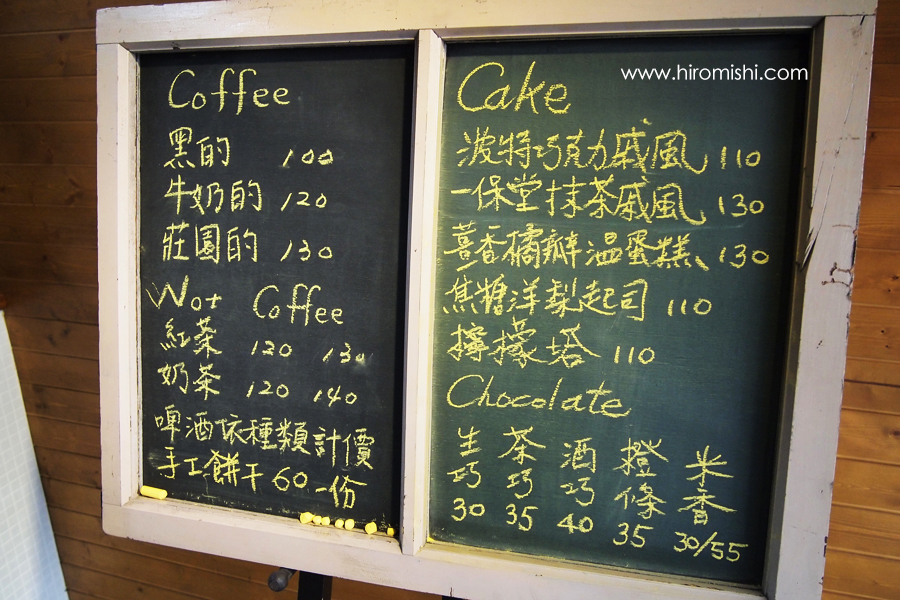 www.hiromishi.com
Coffee
黑的 100
牛奶的 120
莊園的 130
Not Coffee
紅茶 120 130
奶茶 120 140
啤酒依種類計價
手工餅干 60 一份
Cake
波特巧克力戚風 110
一保堂抹茶戚風 130
薑香橘瓣溫蛋糕 130
焦醬洋梨起司 110
檸檬塔 110
Chocolate
生巧 30
茶巧 35
酒巧 40
橙條 35
米香 30/55